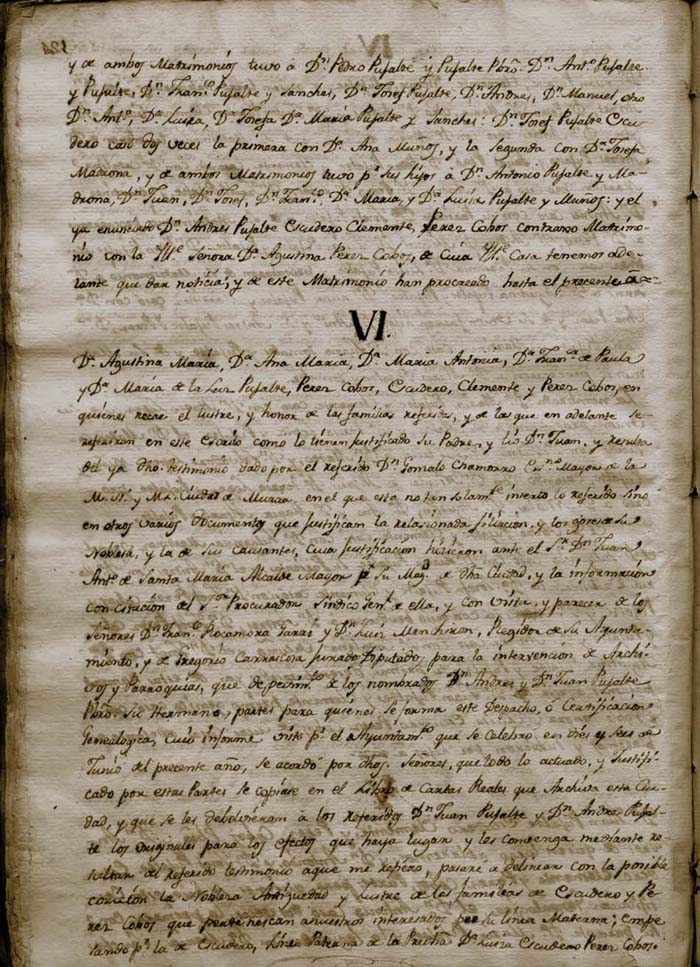 y de ambos Matrimonios tuvo á Dn. Pedro Pujalte y Pujalte Pbro. Dn. Anto. Pujalte
y Pujalte, Dn. Franco. Pujalte y Sanches, Dn. Josef Pujalte, Dn. Andres, Dn. Manuel, otro
Dn. Anto., Da. Luisa, Da. Josefa Da. Maria Pujalte y Sanches: Dn. Josef Pujalte Escu-
dero casó dos veces la primera con Da. Ana Muños, y la Segunda con Da. Josefa
Madrona, y de ambos Matrimonios tuvo pr. Sus hijos á Dn. Antonio Pujalte y Ma-
drona, Dn. Juan, Dn. Josef, Dn. Franco., Da. Maria, y Da. Luisa Pujalte y Muños: y el
ya enunciado Dn. Andres Pujalte Escudero Clemente, Perez Cobos contraxo Matrimo-
nio con la Ille. Señora Da. Agustina Perez Cobos, de Cuia Ille. Casa tenemos ade-
lante que dar noticia, y de este Matrimonio han procreado hasta el precente á
VI.
Da. Agustina María, Da. Ana María, Da. Maria Antonia, Da. Franca. de Paula
y Da. Maria de la Luz Pujalte, Perez Cobos, Escudero, Clemente y Perez Cobos, en
quienes recae el lustre, y honor de las familias referidas, y de las que en adelante se
referiran en este escrito como lo tienen justificado Su Padre, y tio Dn. Juan, y resulta
del ya dho. testimonio dado por el referido Dn. Gonzalo Chamorro Esno. Mayor de la
M. N. y M. L. Ciudad de Murcia, en el que esta no tan solamte. incerto lo referido sino
en otros varios documentos que justifican la relasionada filiacion, y los goses de su
Noblesa, y la de Sus Causantes, Cuia justificacion hisieron ante el Sr. Dn. Juan
Anto. de Santa Maria Alcalde Mayor pr. Su Magd. de dha Ciudad, y la informacion
con citacion del Sor. Procurador Sindico Genl. de ella, y con vista, y parecer de los
Señores Dn. Franco. Rocamora y Dn. Luis Menchiron, Regidor de Su Ayunta-
miento, y de Gregorio Carrascosa Jurado Diputados para la intervencion de Archi-
vos y Parroquias, que de pedimto. de los nombrados Dn. Andres y Dn. Juan Pujalte
Pbro. Su Hermano, partes para quienes se forma este Despacho, ó Certificacion
Genealogica, Cuio informe visto pr. el Ayuntamto. que se Celebro en dies y seis de
Junio del precente año, se acordó por dhos. Señores, que todo lo actuado, y Justifi-
cado por estas Partes se copiase en el Libro de Cartas Reales que Archiva esta Ciu-
dad, y que se les debolvieran á los referidos Dn. Juan Pujalte y Dn. Andres Pujal-
te los originales para los efectos que haya lugar y les convenga mediante re-
sultar del referido testimonio aque me refiero, pasaré a delinear con la posible
concicion la Nobleza Antiguedad y Lustre de las familias de Escudero y Pe-
rez Cobos que pertenescan anuestros interesados por su linea Materna; empe-
sando pr. la de Escudero, Linea Paterna de la Da. Luisa Escudero Perez Cobos.